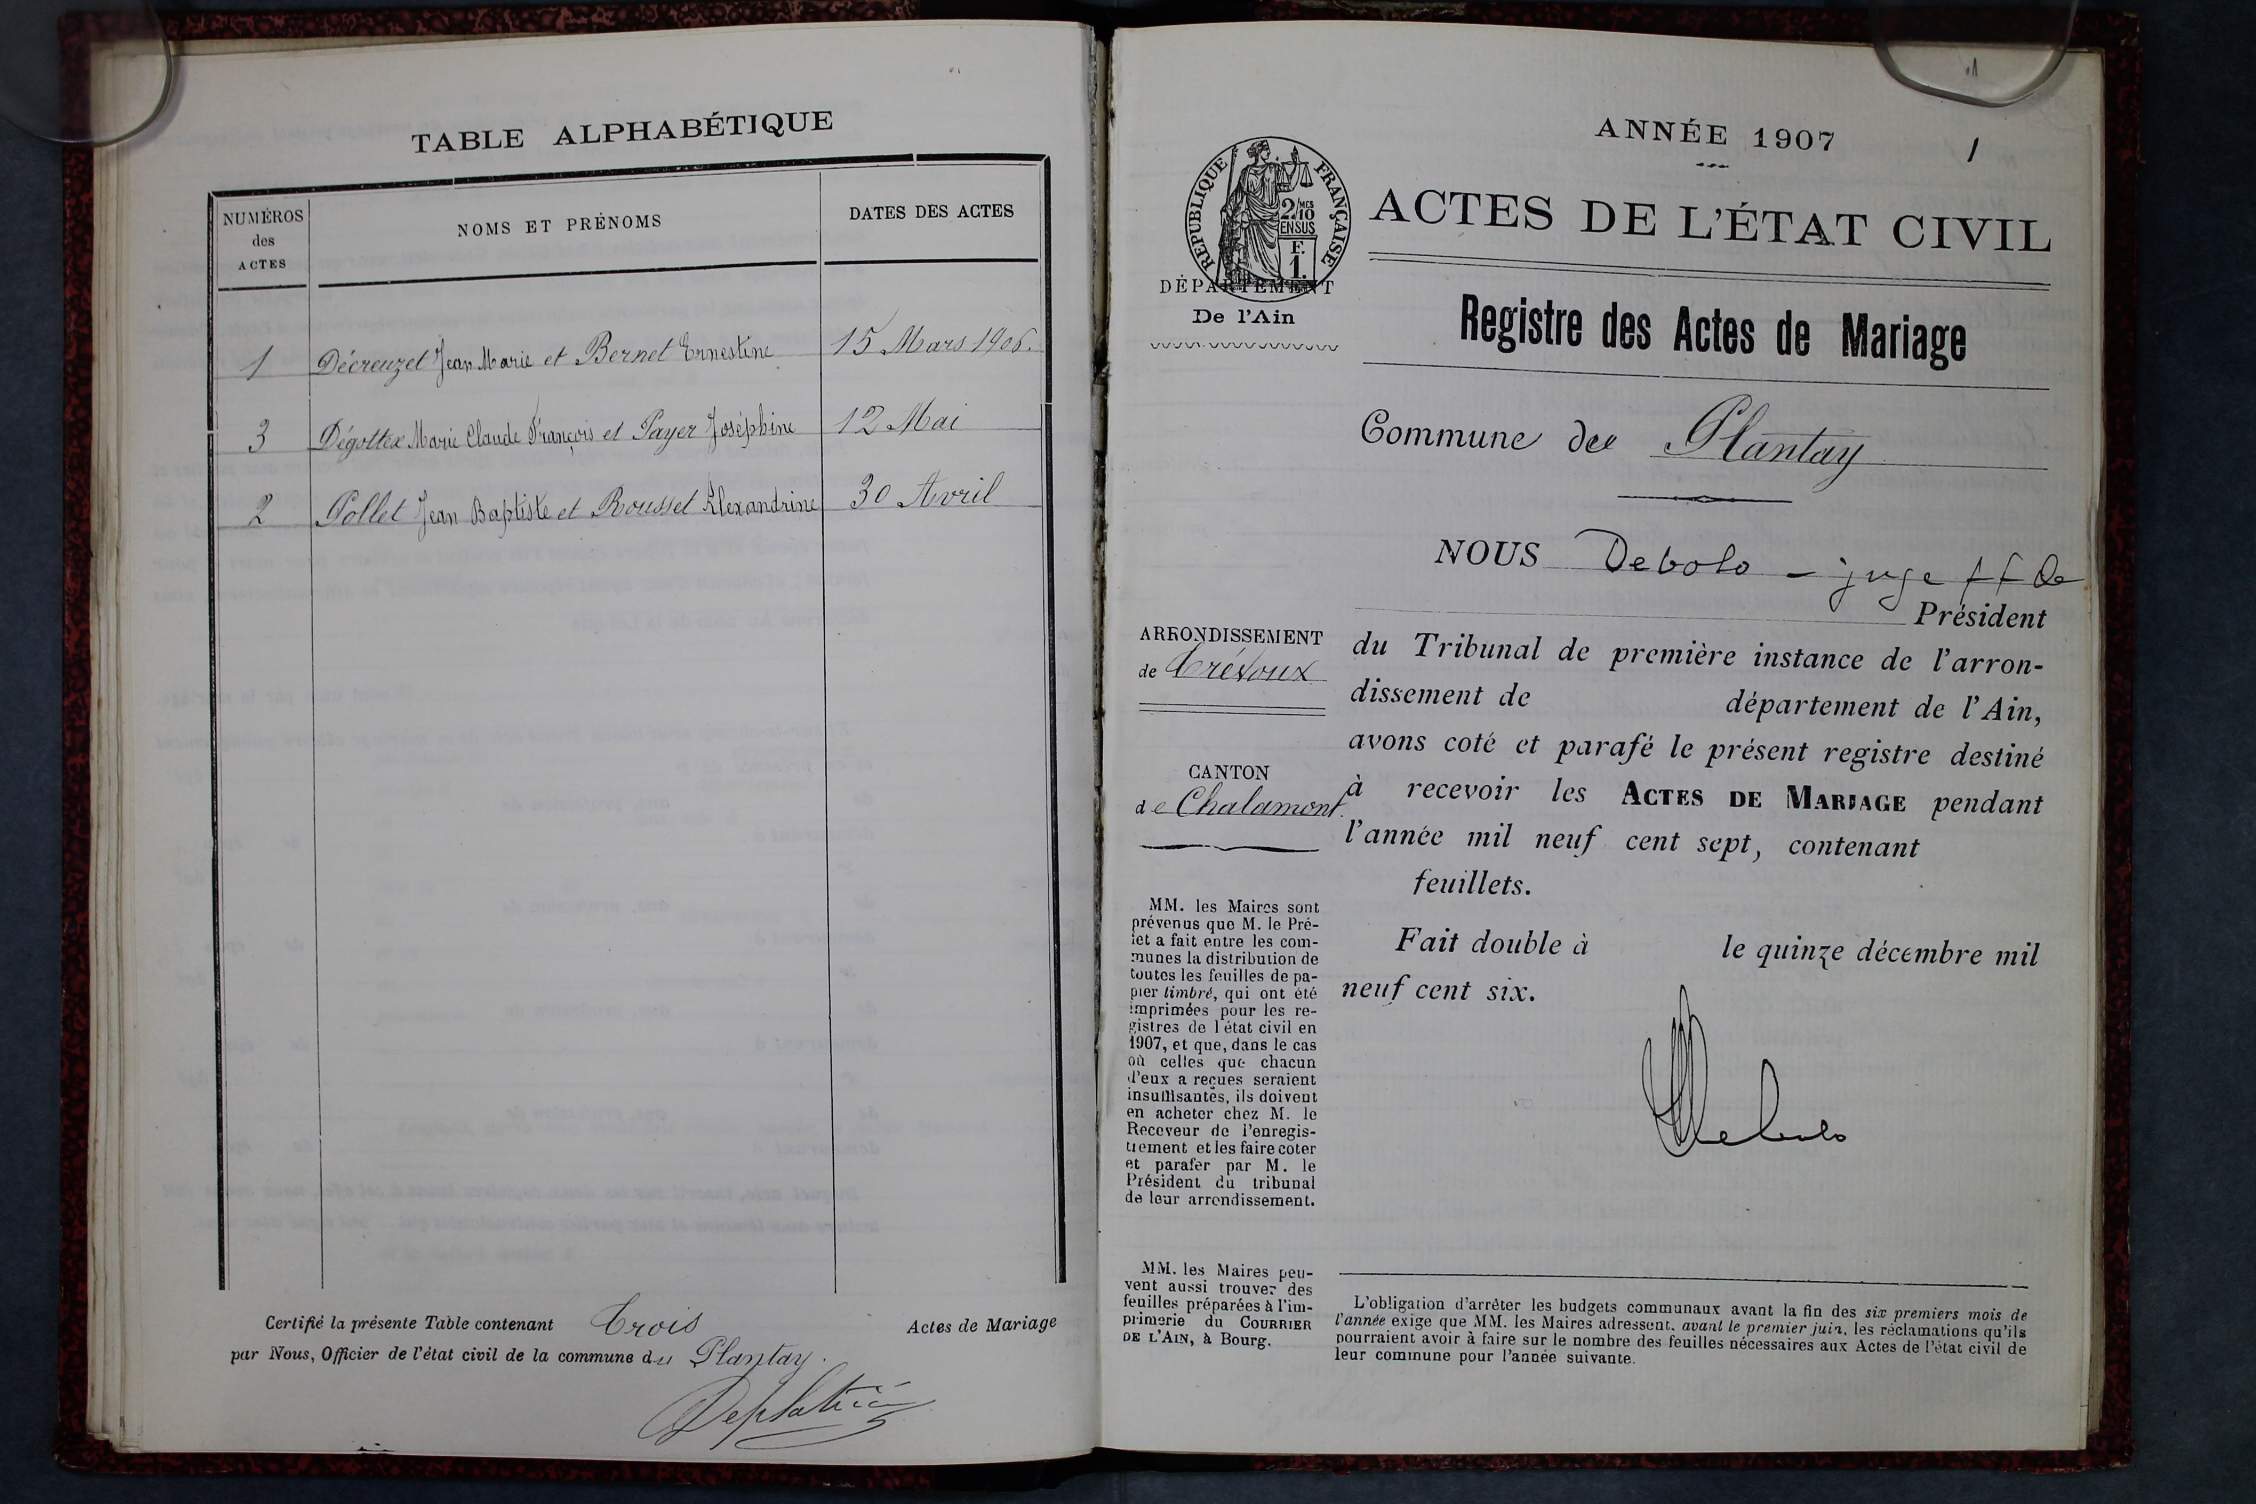 TABLE ALPHABÉTIQUE
NUMÉROS
des
ACTES
NOMS ET PRÉNOMS
DATES DES ACTES
1 Décreuzet Jean Marie et Bernet Ernestine 15 Mars 1906.
3 Dégottex Marie Claude François et Payer Joséphine 12 Mai
2 Pollet Jean Baptiste et Rousset Alexandrine 30 Avril
Certifié la présente Table contenant Trois Actes de Mariage
par Nous, Officier de l'état civil de la commune du Plantay.
1
ANNÉE 1907
RÉPUBLIQUE FRANÇAISE
2/10
MES
EN SUS
F.
1.
ACTES DE L'ÉTAT CIVIL
DÉPARTEMENT
De l'Ain
Registre des Actes de Mariage
Commune de Plantay
NOUS Debolo - juge ff de
Président
du Tribunal de première instance de l'arron-
dissement de département de l'Ain,
avons coté et parafé le présent registre destiné
à recevoir les ACTES DE MARIAGE pendant
l'année mil neuf cent sept, contenant
feuillets.
Fait double à le quinze décembre mil
neuf cent six.
Debolo
ARRONDISSEMENT
de Trévoux
CANTON
de Chalamont.
MM. les Maires sont
prévenus que M. le Pré-
fet a fait entre les com-
munes la distribution de
toutes les feuilles de pa-
pier timbré, qui ont été
imprimées pour les re-
gistres de l'état civil en
1907, et que, dans le cas
où celles que chacun
d'eux a reçues seraient
insuffisantes, ils doivent
en acheter chez M. le
Receveur de l'enregis-
trement et les faire coter
et parafer par M. le
Président du tribunal
de leur arrondissement.
MM. les Maires peu-
vent aussi trouver des
feuilles préparées à l'im-
primerie du COURRIER
DE L'AIN, à Bourg.
L'obligation d'arrêter les budgets communaux avant la fin des six premiers mois de
l'année exige que MM. les Maires adressent, avant le premier juin, les réclamations qu'ils
pourraient avoir à faire sur le nombre des feuilles nécessaires aux Actes de l'état civil de
leur commune pour l'année suivante.